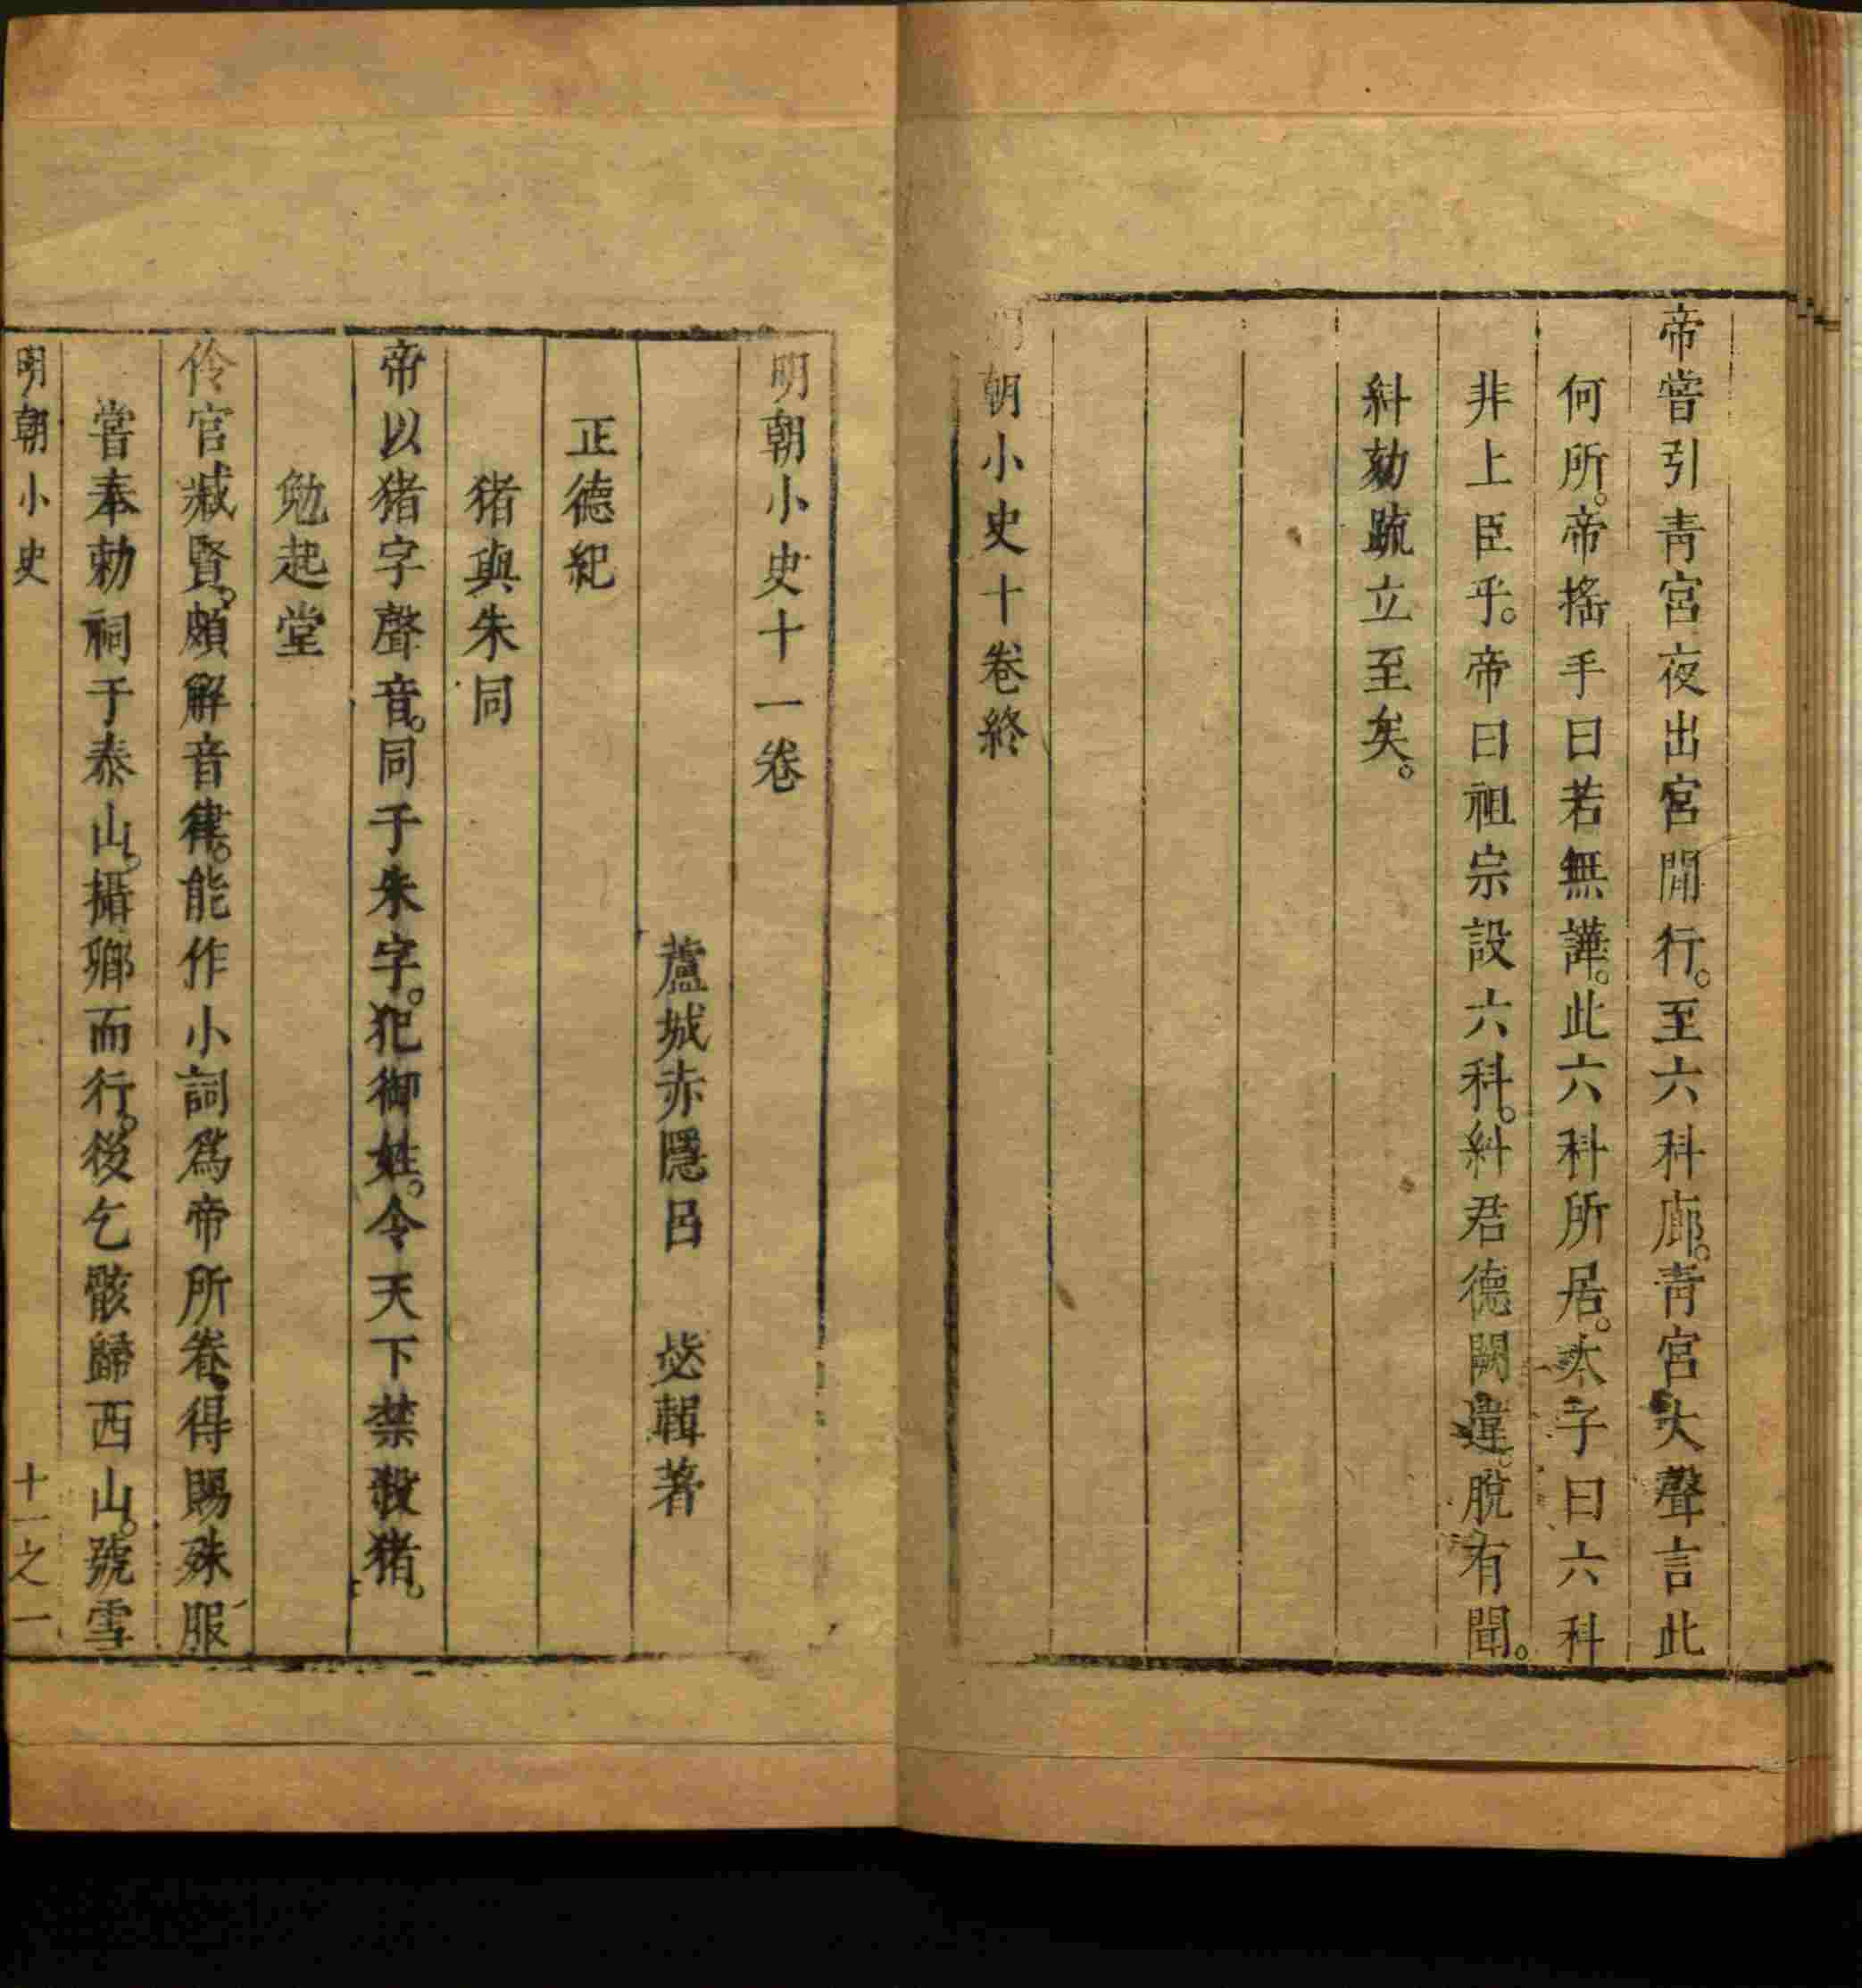 帝嘗引青宮夜出宮閒行。至六科廊。青宮大聲言此
何所。帝搖手曰若無譁。此六科所居。太子曰六科
非上臣乎。帝曰祖宗設六科。糾君德闕違。脫有聞。
糾劾疏立至矣。
明朝小史十卷終
明朝小史十一卷
蘆城赤隱呂 毖輯著
正德紀
猪與朱同
帝以猪字聲音。同于朱字。犯御姓。令天下禁殺猪。
勉起堂
伶官臧賢。頗解音律。能作小詞爲帝所眷。得賜殊服
嘗奉勅祠于泰山。攝鄉而行。後乞骸歸西山。號雪
明朝小史
十一之一